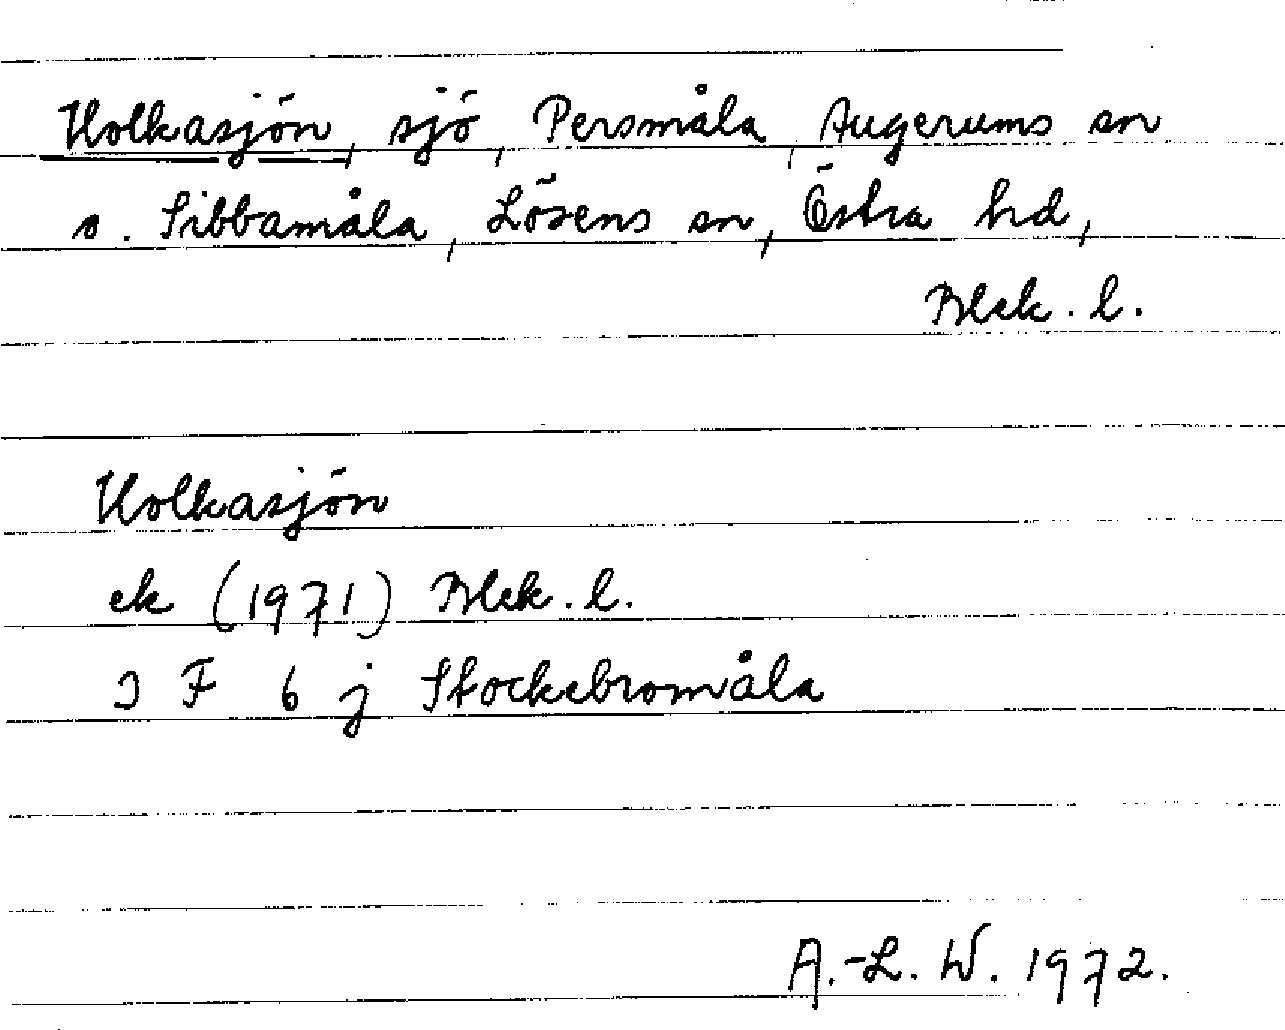 Holkasjön, sjö, Persmåla, Augerums sn
o. Sibbamåla, Lösens sn, Östra hd,
Blek. l.
Holkasjön
ek (1971) Blek. l.
3 F 6 j Stockebromåla
A.-L. W. 1972.